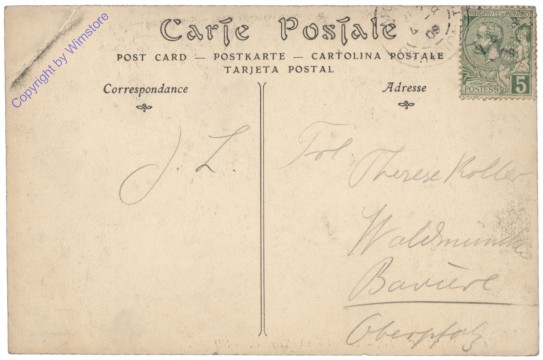 Carte Postale
POST CARD — POSTKARTE — CARTOLINA POSTALE
TARJETA POSTAL
Correspondance
Adresse
J. L.
Frl.
Therese Koller
Waldmünchen
Bavière
Oberpfalz
POSTES
5
Copyright by Wimstore